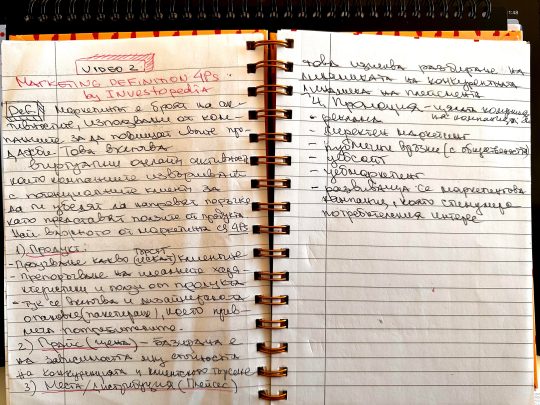 VIDEO 2
MARKETING DEFINITION 4Ps
by INVESTOPEDIA
Def. Маркетингът е броят на ак-
тивностите, използвани от ком-
паниите за да повишат своите про-
дажби. Това включва
виртуални онлайн активности
които компаниите извършват
с потенциалните клиенти за
да ги убедят да направят поръчка
като представят ползите от продукта
Най-важното от маркетинга са 4Ps
1) Продукт:
търсят
- Проучване какво (искат) клиентите
- препоръчване на идеалните хара-
ктеристики и ползи от продукта
- тук се включва и дизайнерската
опаковка (пакетиране), което прив-
лича потребителите
2) Прайс (цена) - базирана е
на зависимостта м/у стойността
на конкуренцията и клиентското търсене
3) Места / дистрибуция (Плейсес)
това изисква разбиране на
динамиката на конкурентната
динамика на плейсмента
4. Промоция - цялата комуник.
на компанията
- реклама
- директен маркетинг
- публични връзки (с обществеността)
- уебсайт
- уебмаркетинг
- развиваща се маркетингова
кампания, която стимулира
потребителския интерес